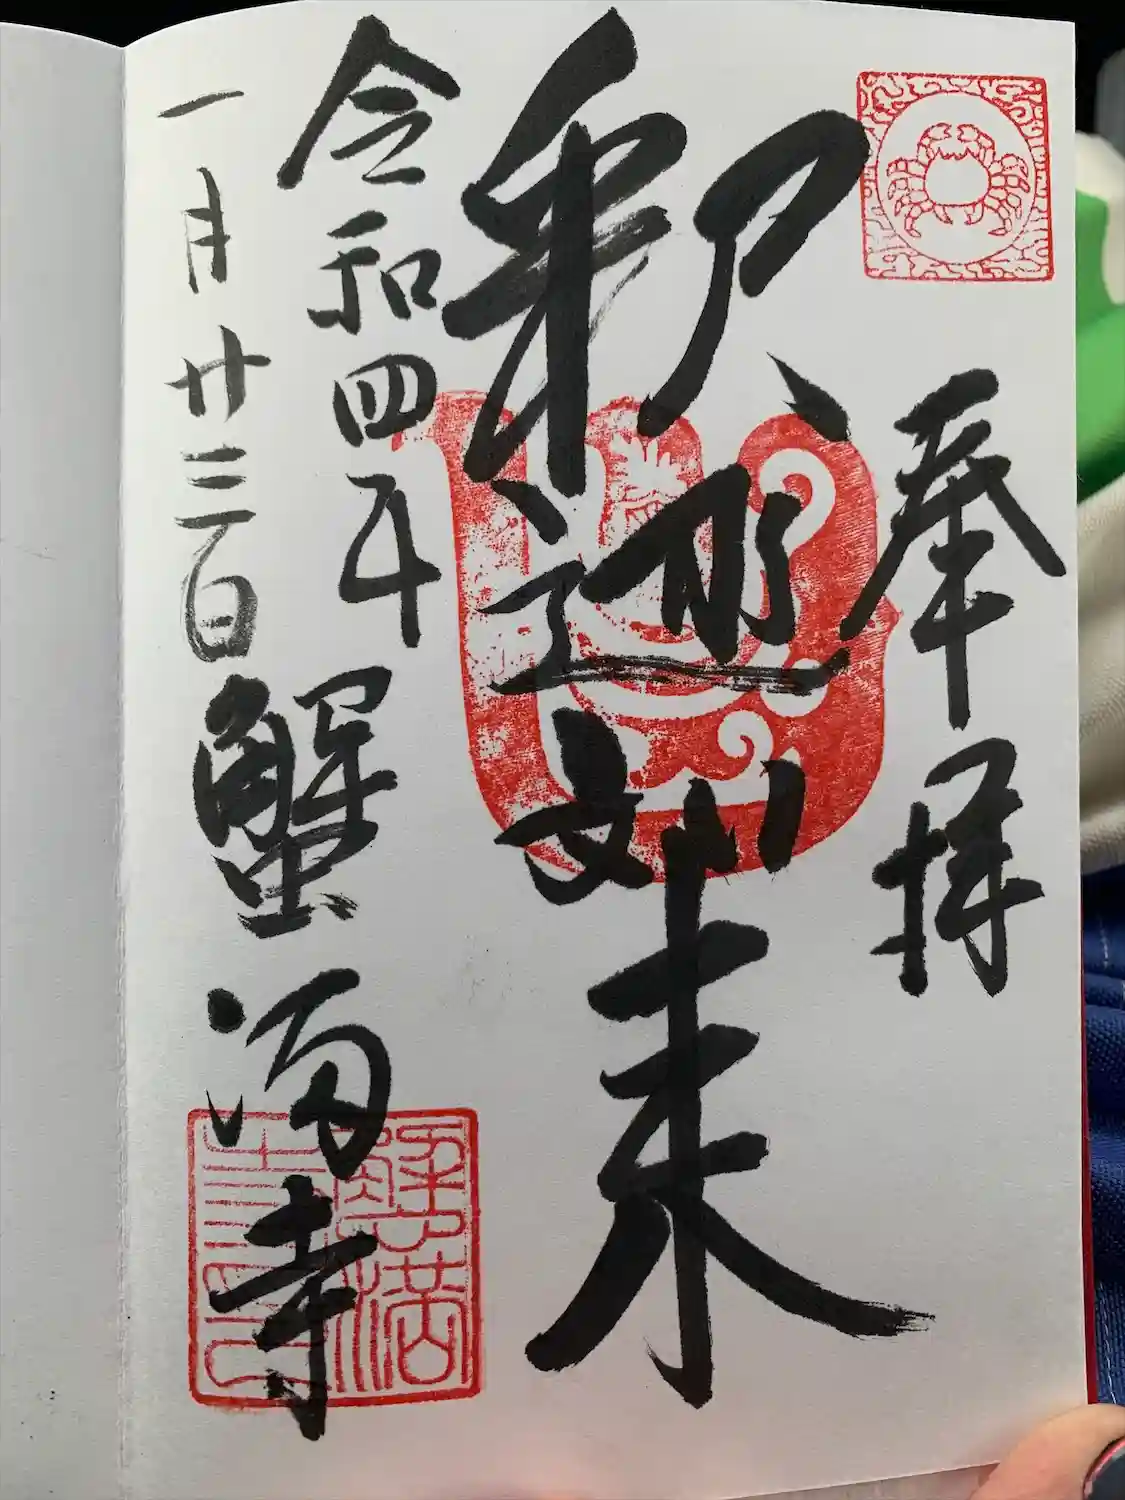 奉拝
釈迦如来
令和四年
一月廿三日
蟹満寺
蟹満寺